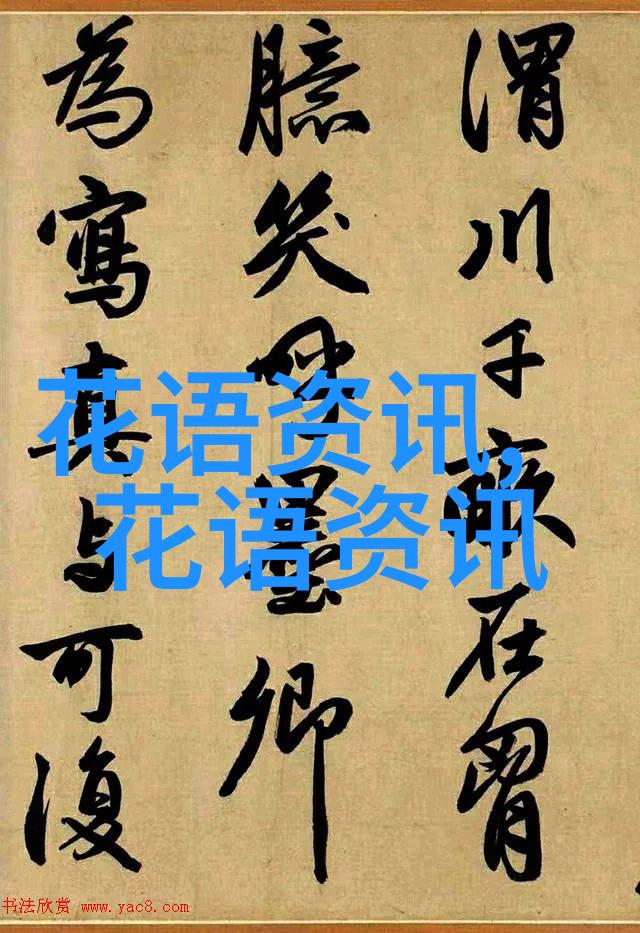 渭川千畝在胷
臆笑呼墨卿
為寫真与可復
花语资讯,
花语资讯
书法欣赏 www.yac8.com